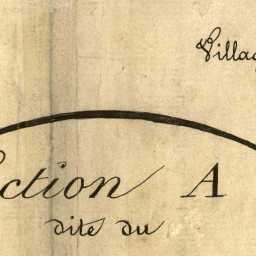 Villag
ction A
dite du